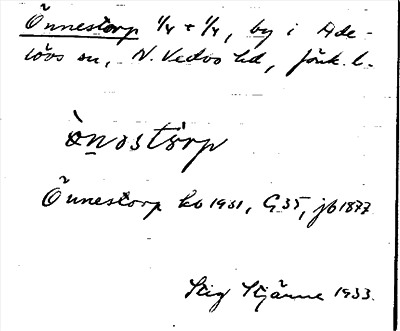 Önnestorp 1/4 + 1/4, by i Ade-
lövs sn, N. Vedbo hd, Jönk. l.
ȯnostȯrp
Önnestorp kb 1931, G 35, jb 1877
Stig Stjärne 1933.